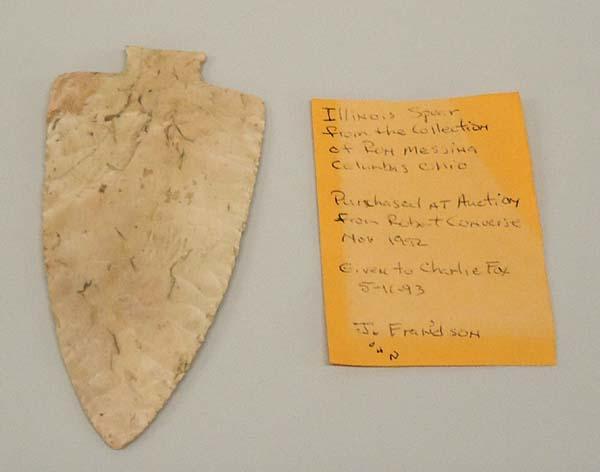 Illinois Spear
from the Collection
of Ron Messina
Columbus Ohio
Purchased AT Auction
from Robert Converse
Nov 1992
Given to Charlie Fox
5-16-93